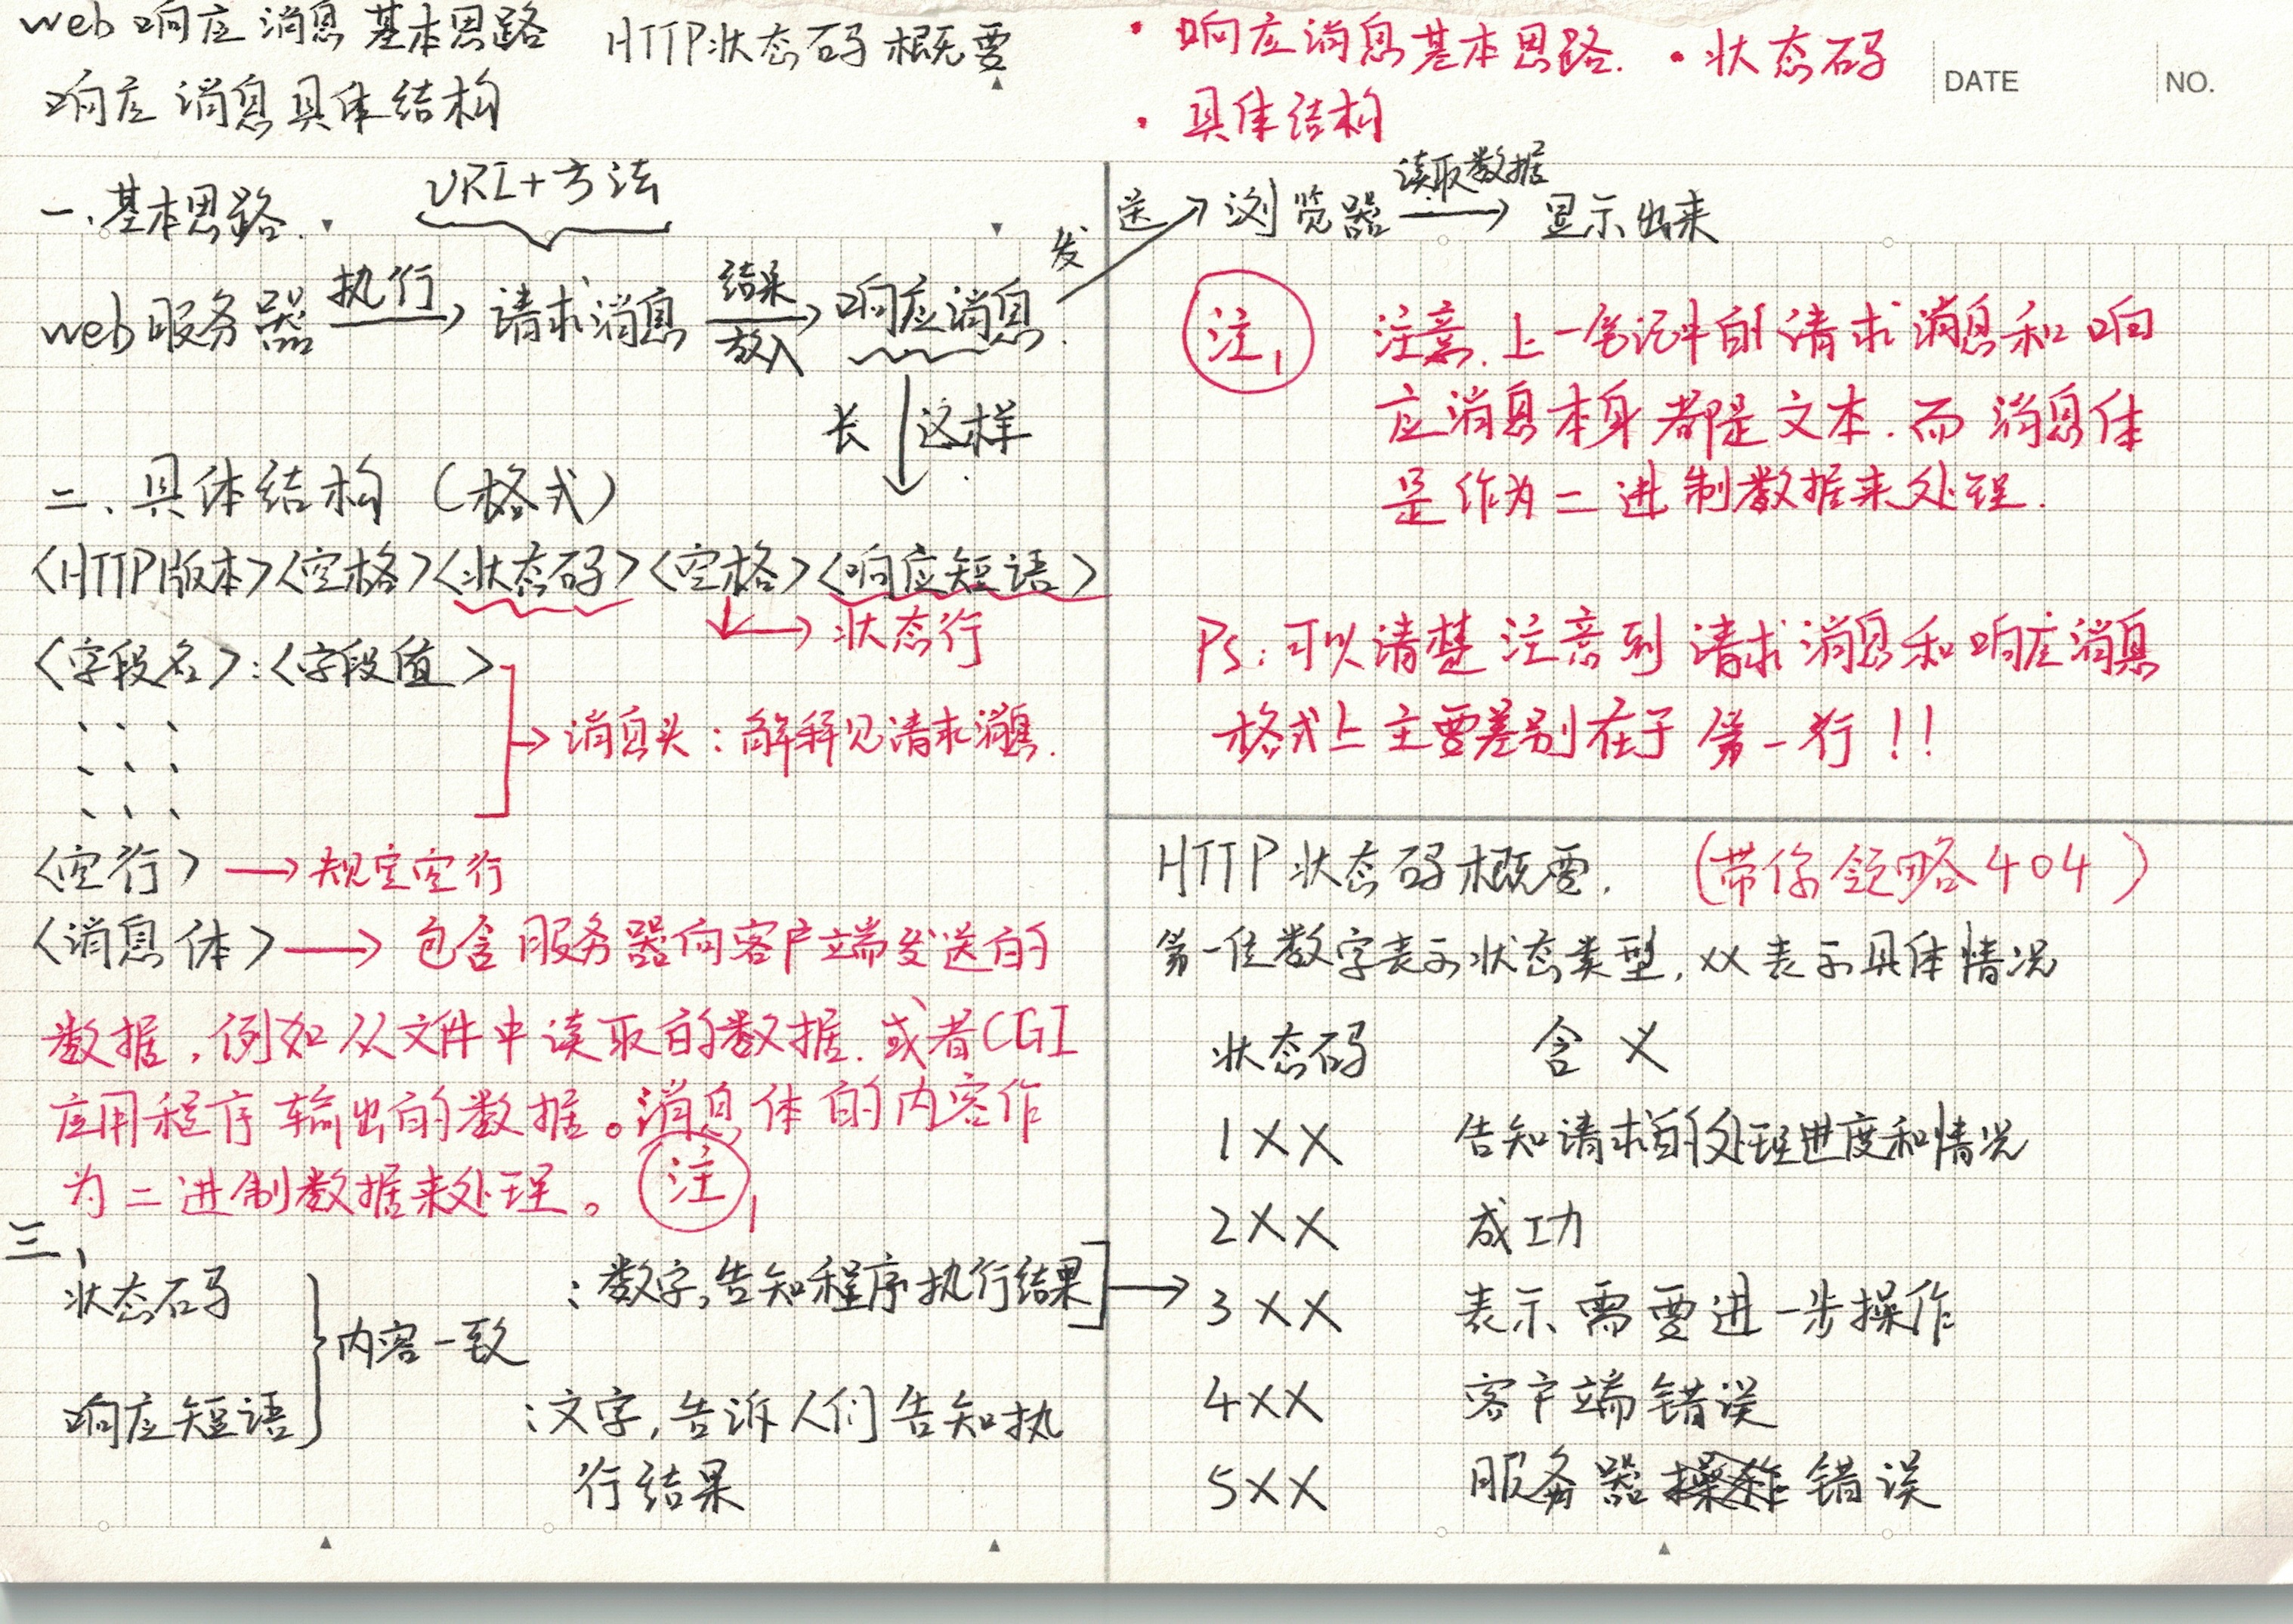 web响应消息基本思路 HTTP状态码概要
响应消息具体结构
· 响应消息基本思路. · 状态码
· 具体结构
DATE NO.
一、基本思路.
URI+方法
web服务器 执行 → 请求消息 结果 放入 → 响应消息.
发送 → 浏览器 读取数据 → 显示出来
长 ↓ 这样
二、具体结构(格式)
<HTTP版本><空格><状态码><空格><响应短语>
→ 状态行
<字段名>:<字段值>
→ 消息头:解释见请求消息.
<空行> → 规定空行
<消息体> → 包含服务器向客户端发送的
数据,例如从文件中读取的数据.或者CGI
应用程序输出的数据。消息体的内容作
为二进制数据来处理。 注1
三、
状态码 :数字,告知程序执行结果 →
内容一致
响应短语 :文字,告诉人们告知执
行结果
注1 注意.上一笔记中的请求消息和响
应消息本身都是文本.而消息体
是作为二进制数据来处理.
Ps:可以清楚注意到请求消息和响应消息
格式上主要差别在于第一行!!
HTTP状态码概要. (带你领略404)
第一位数字表示状态类型,xx表示具体情况
状态码 含义
1XX 告知请求的处理进度和情况
2XX 成功
3XX 表示需要进一步操作
4XX 客户端错误
5XX 服务器操作错误